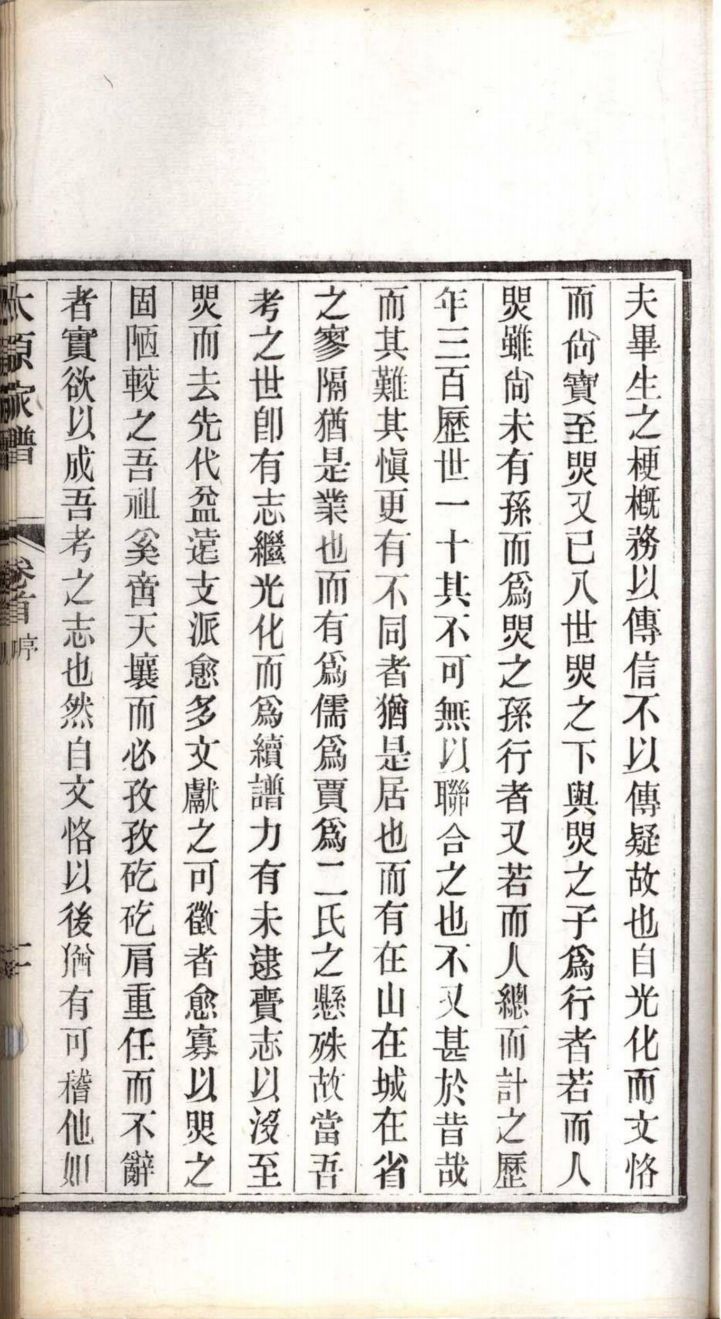 夫畢生之梗槪務以傳信不以傳疑故也自光化而文恪
而尙寶至煚又已八世煚之下與煚之子爲行者若而人
煚雖尙未有孫而爲煚之孫行者又若而人總而計之歷
年三百歷世一十其不可無以聯合之也不又甚於昔哉
而其難其愼更有不同者猶是居也而有在山在城在省
之寥隔猶是業也而有爲儒爲賈爲二氏之懸殊故當吾
考之世卽有志繼光化而爲續譜力有未逮賫志以沒至
煚而去先代益遠支派愈多文獻之可徵者愈寡以煚之
固陋較之吾祖奚啻天壤而必孜孜矻矻肩重任而不辭
者實欲以成吾考之志也然自文恪以後猶有可稽他如
太原家譜 卷首